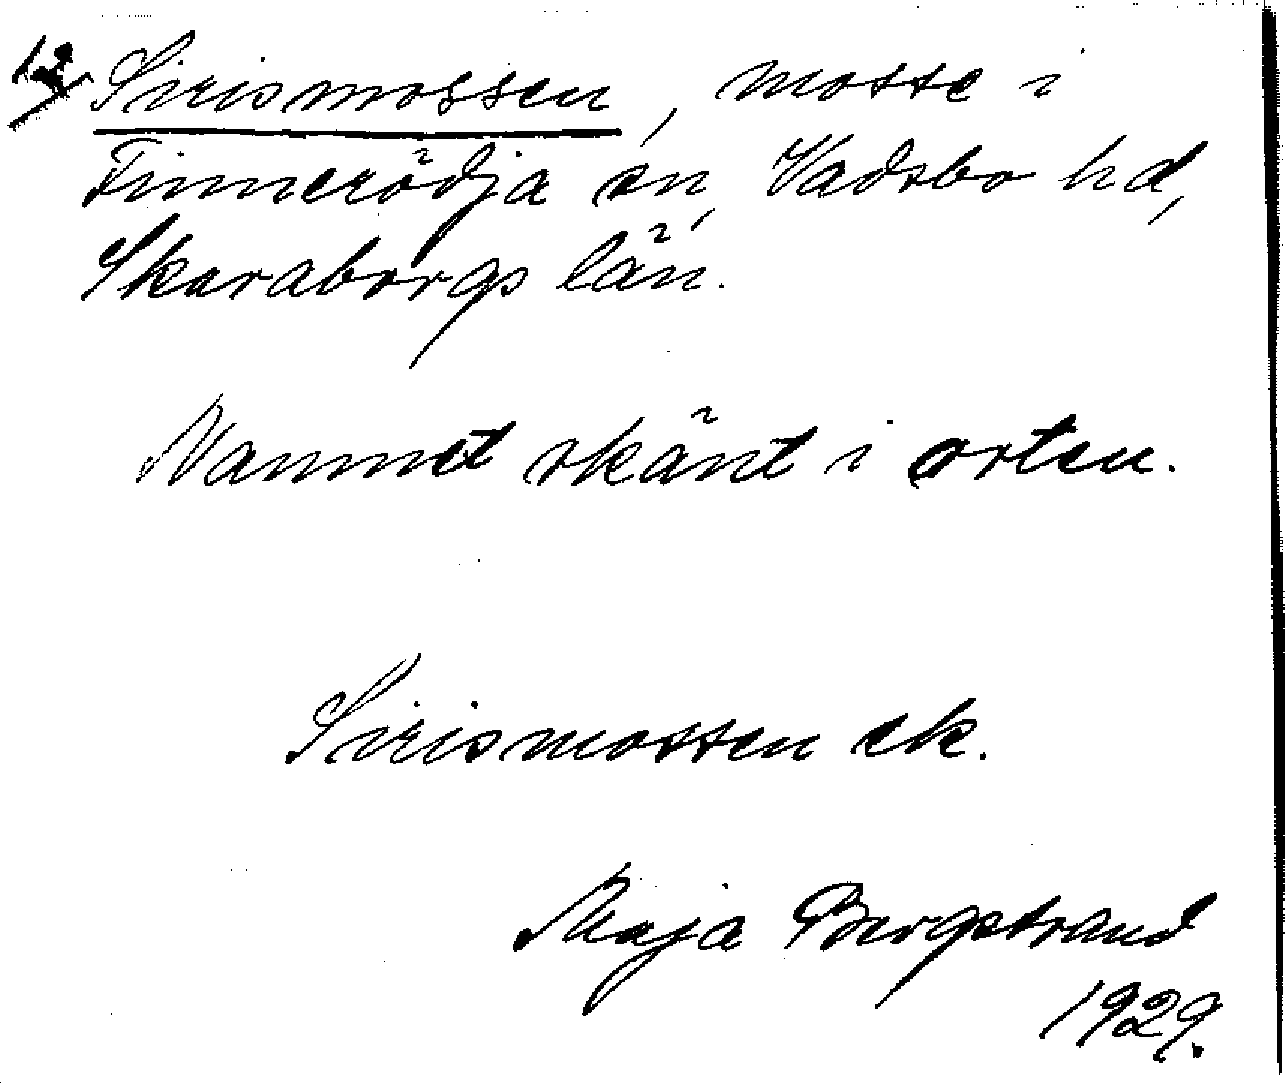 Sirismossen, mosse i
Finnerödja sn, Vadsbo hd,
Skaraborgs län.
Namnet okänt i orten.
Sirismossen ek.
Maja Bergstrand
1929.